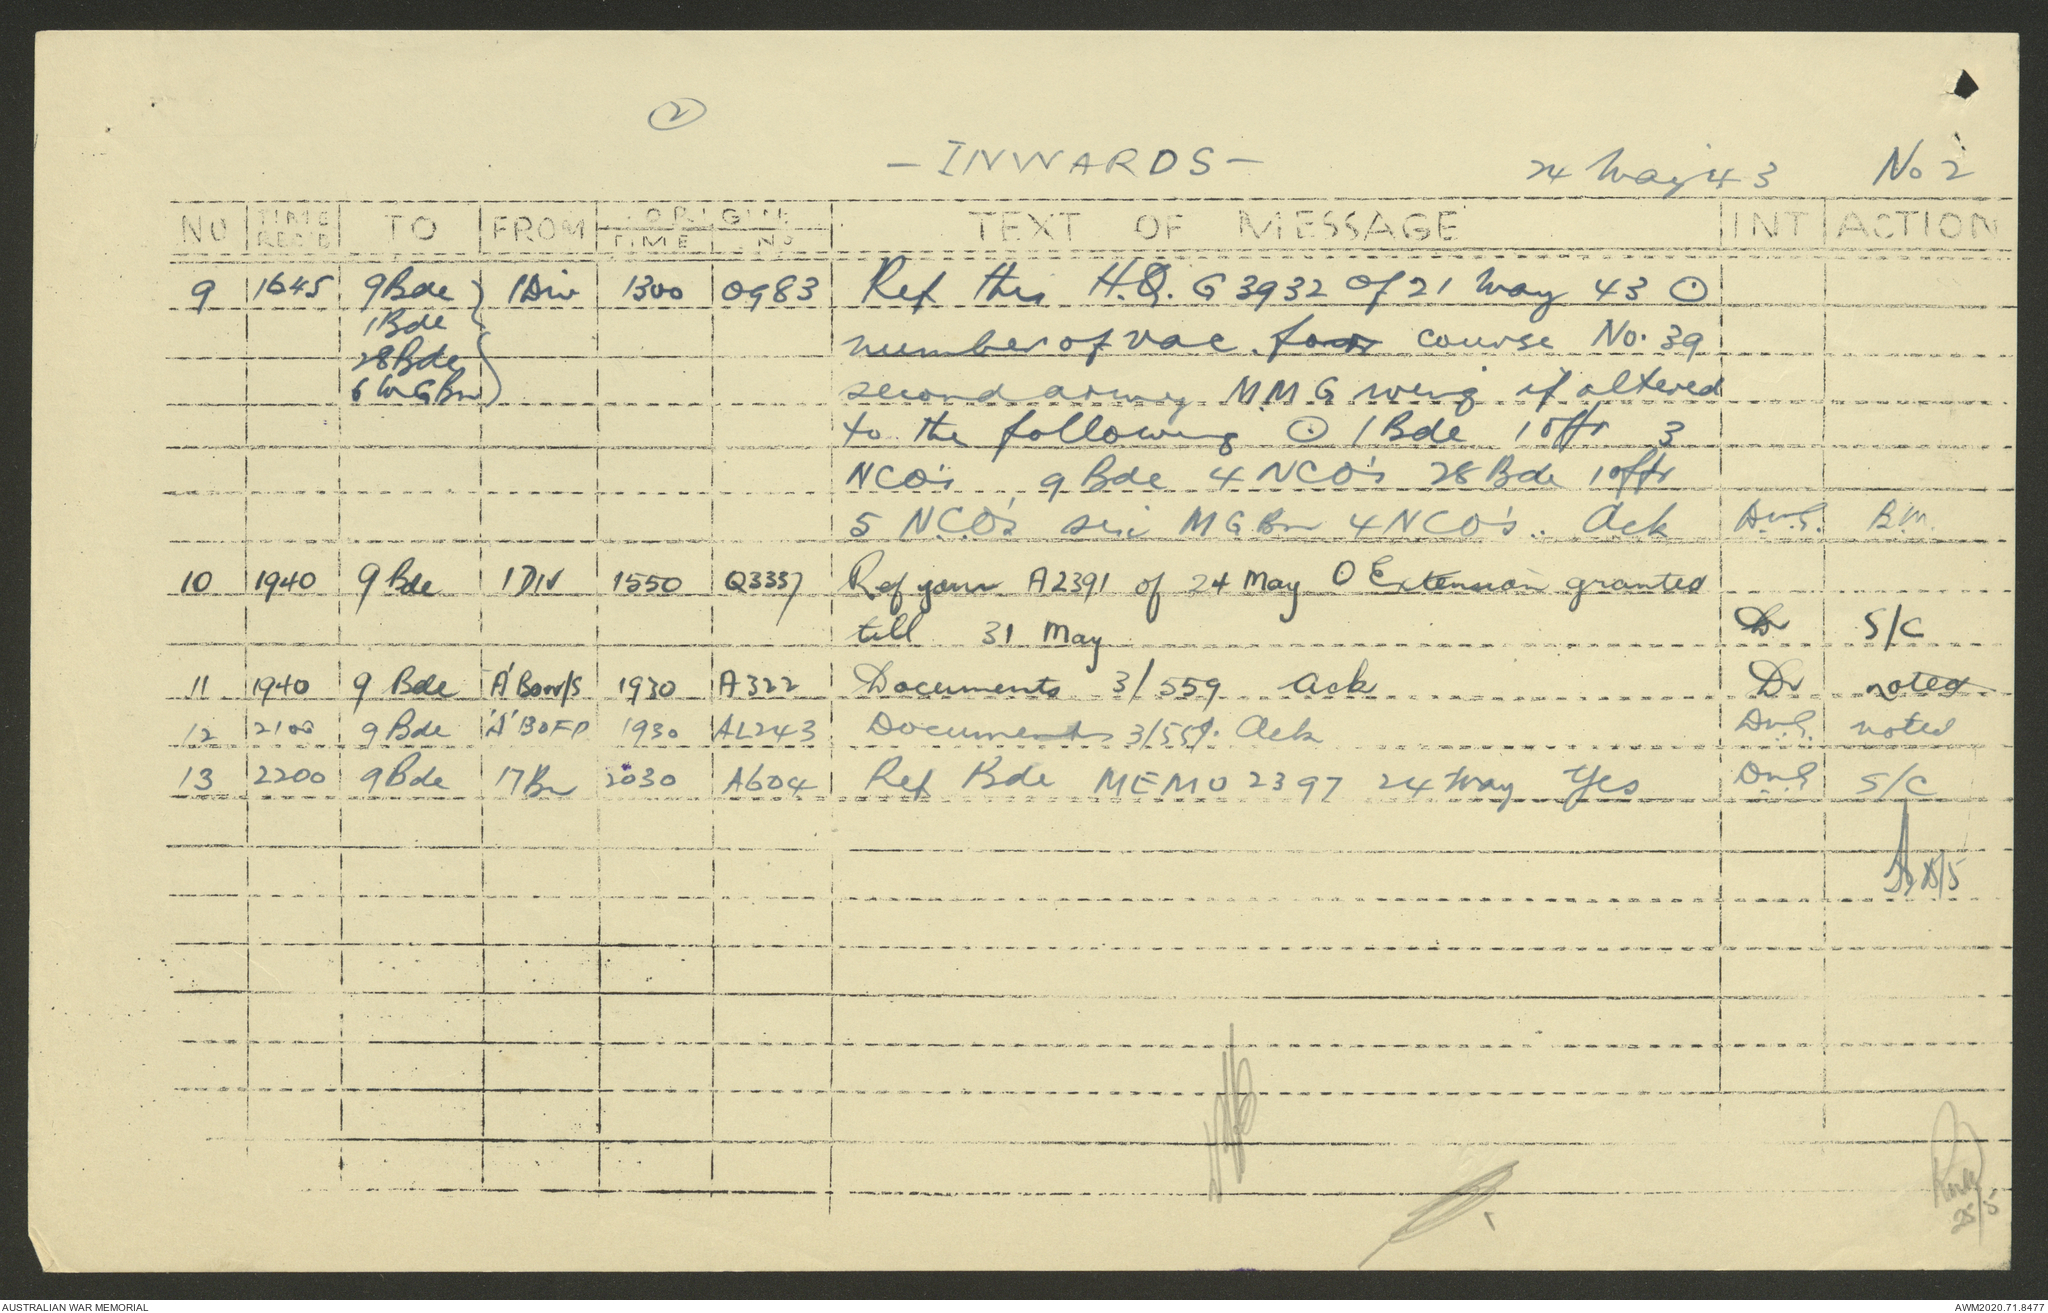 2
- INWARDS -
24 May 43 No 2
NO TIME REC'D TO FROM ORIGINE TIME NO TEXT OF MESSAGE INT ACTION
9 1645 9 Bde 1 Div 1300 0983 Ref this H.Q. G 3932 of 21 May 43 ⊙
1 Bde number of vac for course No. 39
28 Bde second army M.M.G wing if altered
6 M G Bn to the following ⊙ 1 Bde 1 offr 3
NCO's 9 Bde 4 NCO's 28 Bde 1 offr
5 N.C.O's six M G Bn 4 NCO's. Ack B.M.
10 1940 9 Bde 1 DIV 1550 Q3337 Ref your A2391 of 24 May O Extension granted
till 31 May S/C
11 1940 9 Bde 1930 A322 Documents 3/559 Ack noted
12 2100 9 Bde 1930 AL243 Documents 3/559. Ack noted
13 2200 9 Bde 17 Bn 2030 A604 Ref Bde MEMO 2397 24 May Yes S/C
25/5
AUSTRALIAN WAR MEMORIAL AWM2020.71.8477